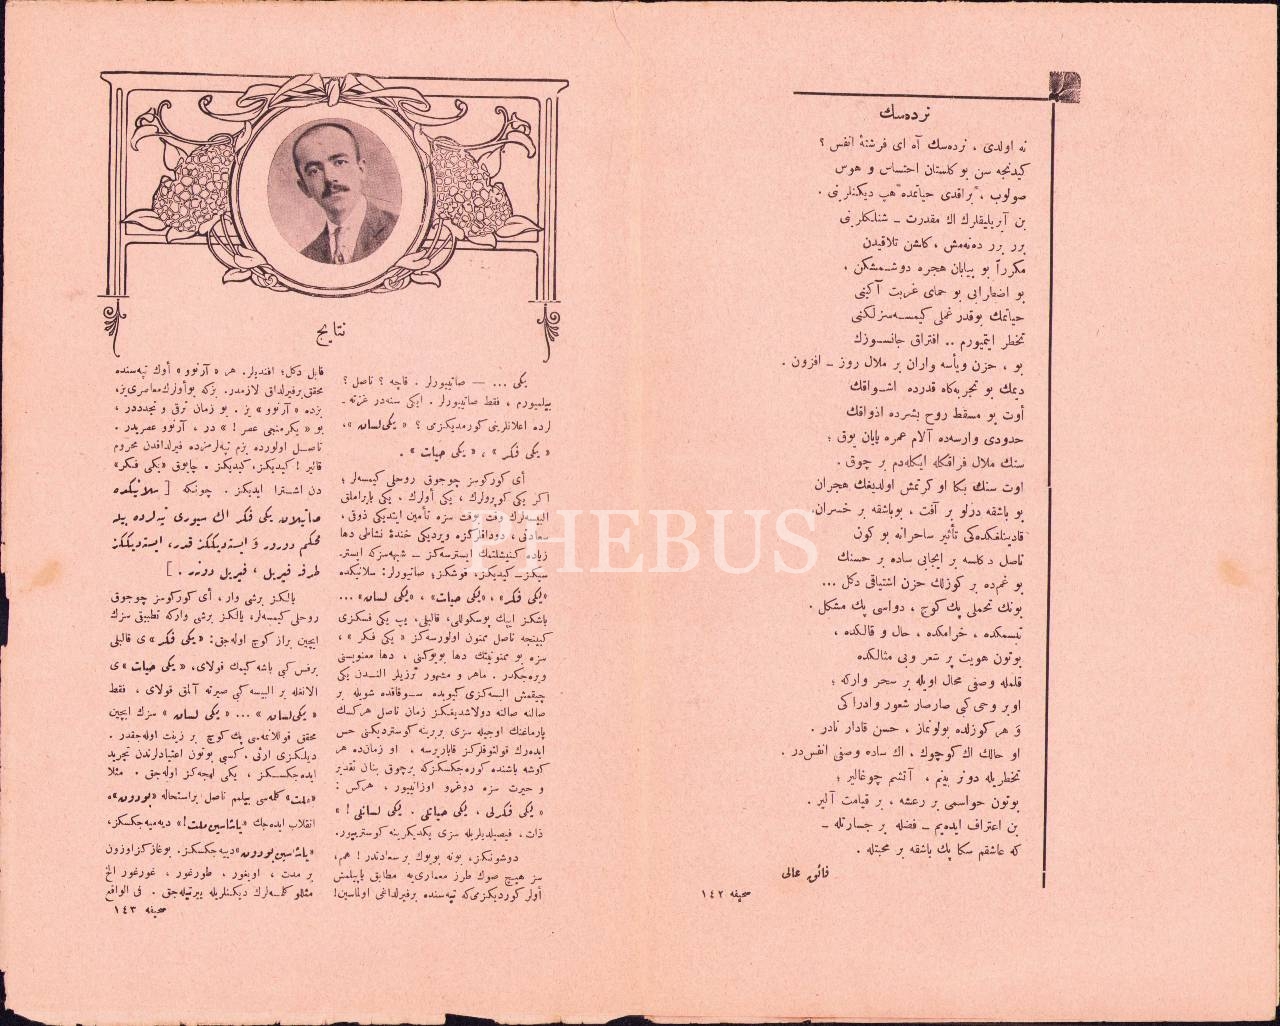 نرده‌سك
نه اولدی ، نرده‌سك آه ای فرشتهٔ انفس ؟
كیدنجه سن بو كلستان احتساس و هوس
صولوب ، براقدی حیاتمده هپ دیكنلرینی .
بن آیریلیقلرك اك مقدرت ـ شكنلرینی
برر برر ده‌نه‌مش ، كلشن تلاقیدن
مكرراً بو بیابان هجره دوشـمشكن .
بو اضطرابی بو حمای غربت آكینی
حیاتمك بوقدر غملی كیمسـه‌سزلكنی
تخطر ایتمیورم .. افتراق جانسـوزك
بو ، حزن ویأسه واران بر ملال روز ـ افزون .
دیمك بو تجربه‌كاه قدرده اشـواقك
أوت بو مسقط روح بشرده اذواقك
حدودی وارسه‌ده آلام عمره پایان یوق ؛
سنك ملال فراقكله ایكله‌دم بر چوق .
اوت سنك بكا او كرتمش اولدیغك هجران
بو باشقه درلو بر آفت ، بوباشقه بر خسران.
قادینلغكده‌كی تأثیر ساحرانه بو كون
ناصل دكلسه بر ایجابی ساده بر حسنك
بو غمده بر كوزلك حزن اشتیاقی دكل ...
بونك تحملی پك كوج ، دواسی پك مشكل .
تبسمكده ، خرامكده ، حال و قالكده ،
بوتون هویت بر شعر وبی مثالكده
قلمله وصفی محال اویله بر سحر واركه ؛
اوبر وحی كی صارصار شعور وادراكی
و هر كوزلده بولونماز ، حسن قادار نادر .
او حالك اك كوچوك ، اك ساده وصفی انفس‌در .
تخطریله دونر بینم ، آتشم چوغالیر ؛
بوتون حواسمی بر رعشه ، بر قیامت آلیر .
بن اعتراف ایده‌یم ـ فضله بر جسارتله ـ
كه عاشقم سكا پك باشقه بر محبتله .
فائق عالی
صحیفه ١٤٢
نتایج
یكی ... — صاتیيورلر . قاچه ؟ ناصل ؟
بیلمیورم ، فقط صاتیيورلر . ایكی سنه‌در غزته ـ
لرده اعلانلرینی كورمدیكزمی ؟ « یكی لسان »،
« یكی فكر » ، « یكی حیات » .
أی كوركوسز چوجوق روحلی كیمسه‌لر ؛
اكر یكی كوپرولرك ، یكی أولرك ، یكی بایراملق
البسه‌لرك وقت بوقت سزه تأمین ایتدیكی ذوقی ،
سعادتی ، دوداقلركزه ویردیكی خندهٔ نشاطی دها
زیاده كنیشلتمك ایسترسه‌كز — شبهه‌سزكه ایستر.
سیكز — كیدیكز، قوشكز؛ صاتیورلر: سلانیكده
«یكی فكر» ، «یكی حیات» ، «یكی لسان» ...
باشكز ایپك پوسكوللی، قالبلی، یپ یكی فسكزی
كیینجه ناصل ممنون اولورسه‌كز « یكی فكر » ،
سزه بو ممنونیتك دها بویوكنی ، دها معنویسنی
ویره‌جكدر . ماهر و مشهور ترزیلر الندن یكی
چیقمش البسه‌كزی كیوبده سـوقاقده شویله بر
صالنه صالنه دولاشدیغكز زمان ناصل هركسك
پارماغنك اوجیله سزی بربرینه كوستردیكنی حس
ایده‌رك قولتوقلركز قاباریرسه ، او زمان‌ده هر
كوشه باشنده كوره‌جكسكزكه برچوق بنان تقدیر
و حیرت سزه دوغرو اوزانیيور ، هركس :
« یكی فكرلی ، یكی حیاتلی . یكی لسانلی ! »
ذات ، فیصیلدیلریله سزی یكدیكرینه كوسترییور.
دوشونكز، بونه بویوك بر سعادتدر ! هم،
سز هیـچ صوك طرز معماری‌یه مطابق یاپیلمش
أولر كوردیكزمی‌كه تپه‌سنده برفیرلداغی اولماسین!
قابل دكل؛ افندیلر. هر « آرنوو » أوك تپه‌سنده
محقق برفیرلداق لازمدر. بزكه بوأولرك معاصری‌یز،
بزده « آرنوو » یز . بو زمان ترقی و تجدددر ،
بو « یكرمنجی عصر ! » در ، آرنوو عصریدر .
ناصـل اولورده بزم تپه‌لرمزده فیرلداقدن محروم
قالیر ! كیدیكز، كیدیكز . چابوق «یكی فكر»
دن اشـترا ایدیكز . چونكه [ سلانیكده
صاتیلان یكی فكر اك سیوری تپه‌لرده بیله
محكم دورور و ایستدیككز قدر، ایستدیككز
طرفه فیریل ، فیریل دونر . ]
یالكز برشی وار ، أی كوركوسز چوجوق
روحلی كیمسه‌لر، یالكز برشی واركه تطبیقی سزك
ایچین براز كوچ اوله‌جق: «یكی فكر» ی قالبلی
برفس كبی باشه كیمك قولای، «یكی حیات» ی
الانغله بر البیسه كبی صیرته آلمق قولای ، فقط
«یكی لسان » ... « یكی لسان » سزك ایچین
محقق قوللانمه‌سی پك كوچ بر زینت اوله‌جقدر .
دیلكزی ارتی، كسبی بوتون اعتیادلرندن تجرید
ایده‌جكسـكز ، یكی لهجه‌كز اوله‌جق . مثلا
«ملت» كله‌سی بیلمم ناصل براستحاله «بودون»ه
انقلاب ایده‌جك «یاشاسین ملت!» دیه‌میه‌جكسكز،
«یاشاسین بودون» دییه‌جكسكز. بوغازكز اوزون
بر مدت ، اویغور ، طورغور ، غورغور الخ
مثللو كله‌لرك دیكنلریله ییرتیله‌جق . فی الواقع
صحیفه ١٤٣
PHEBUS